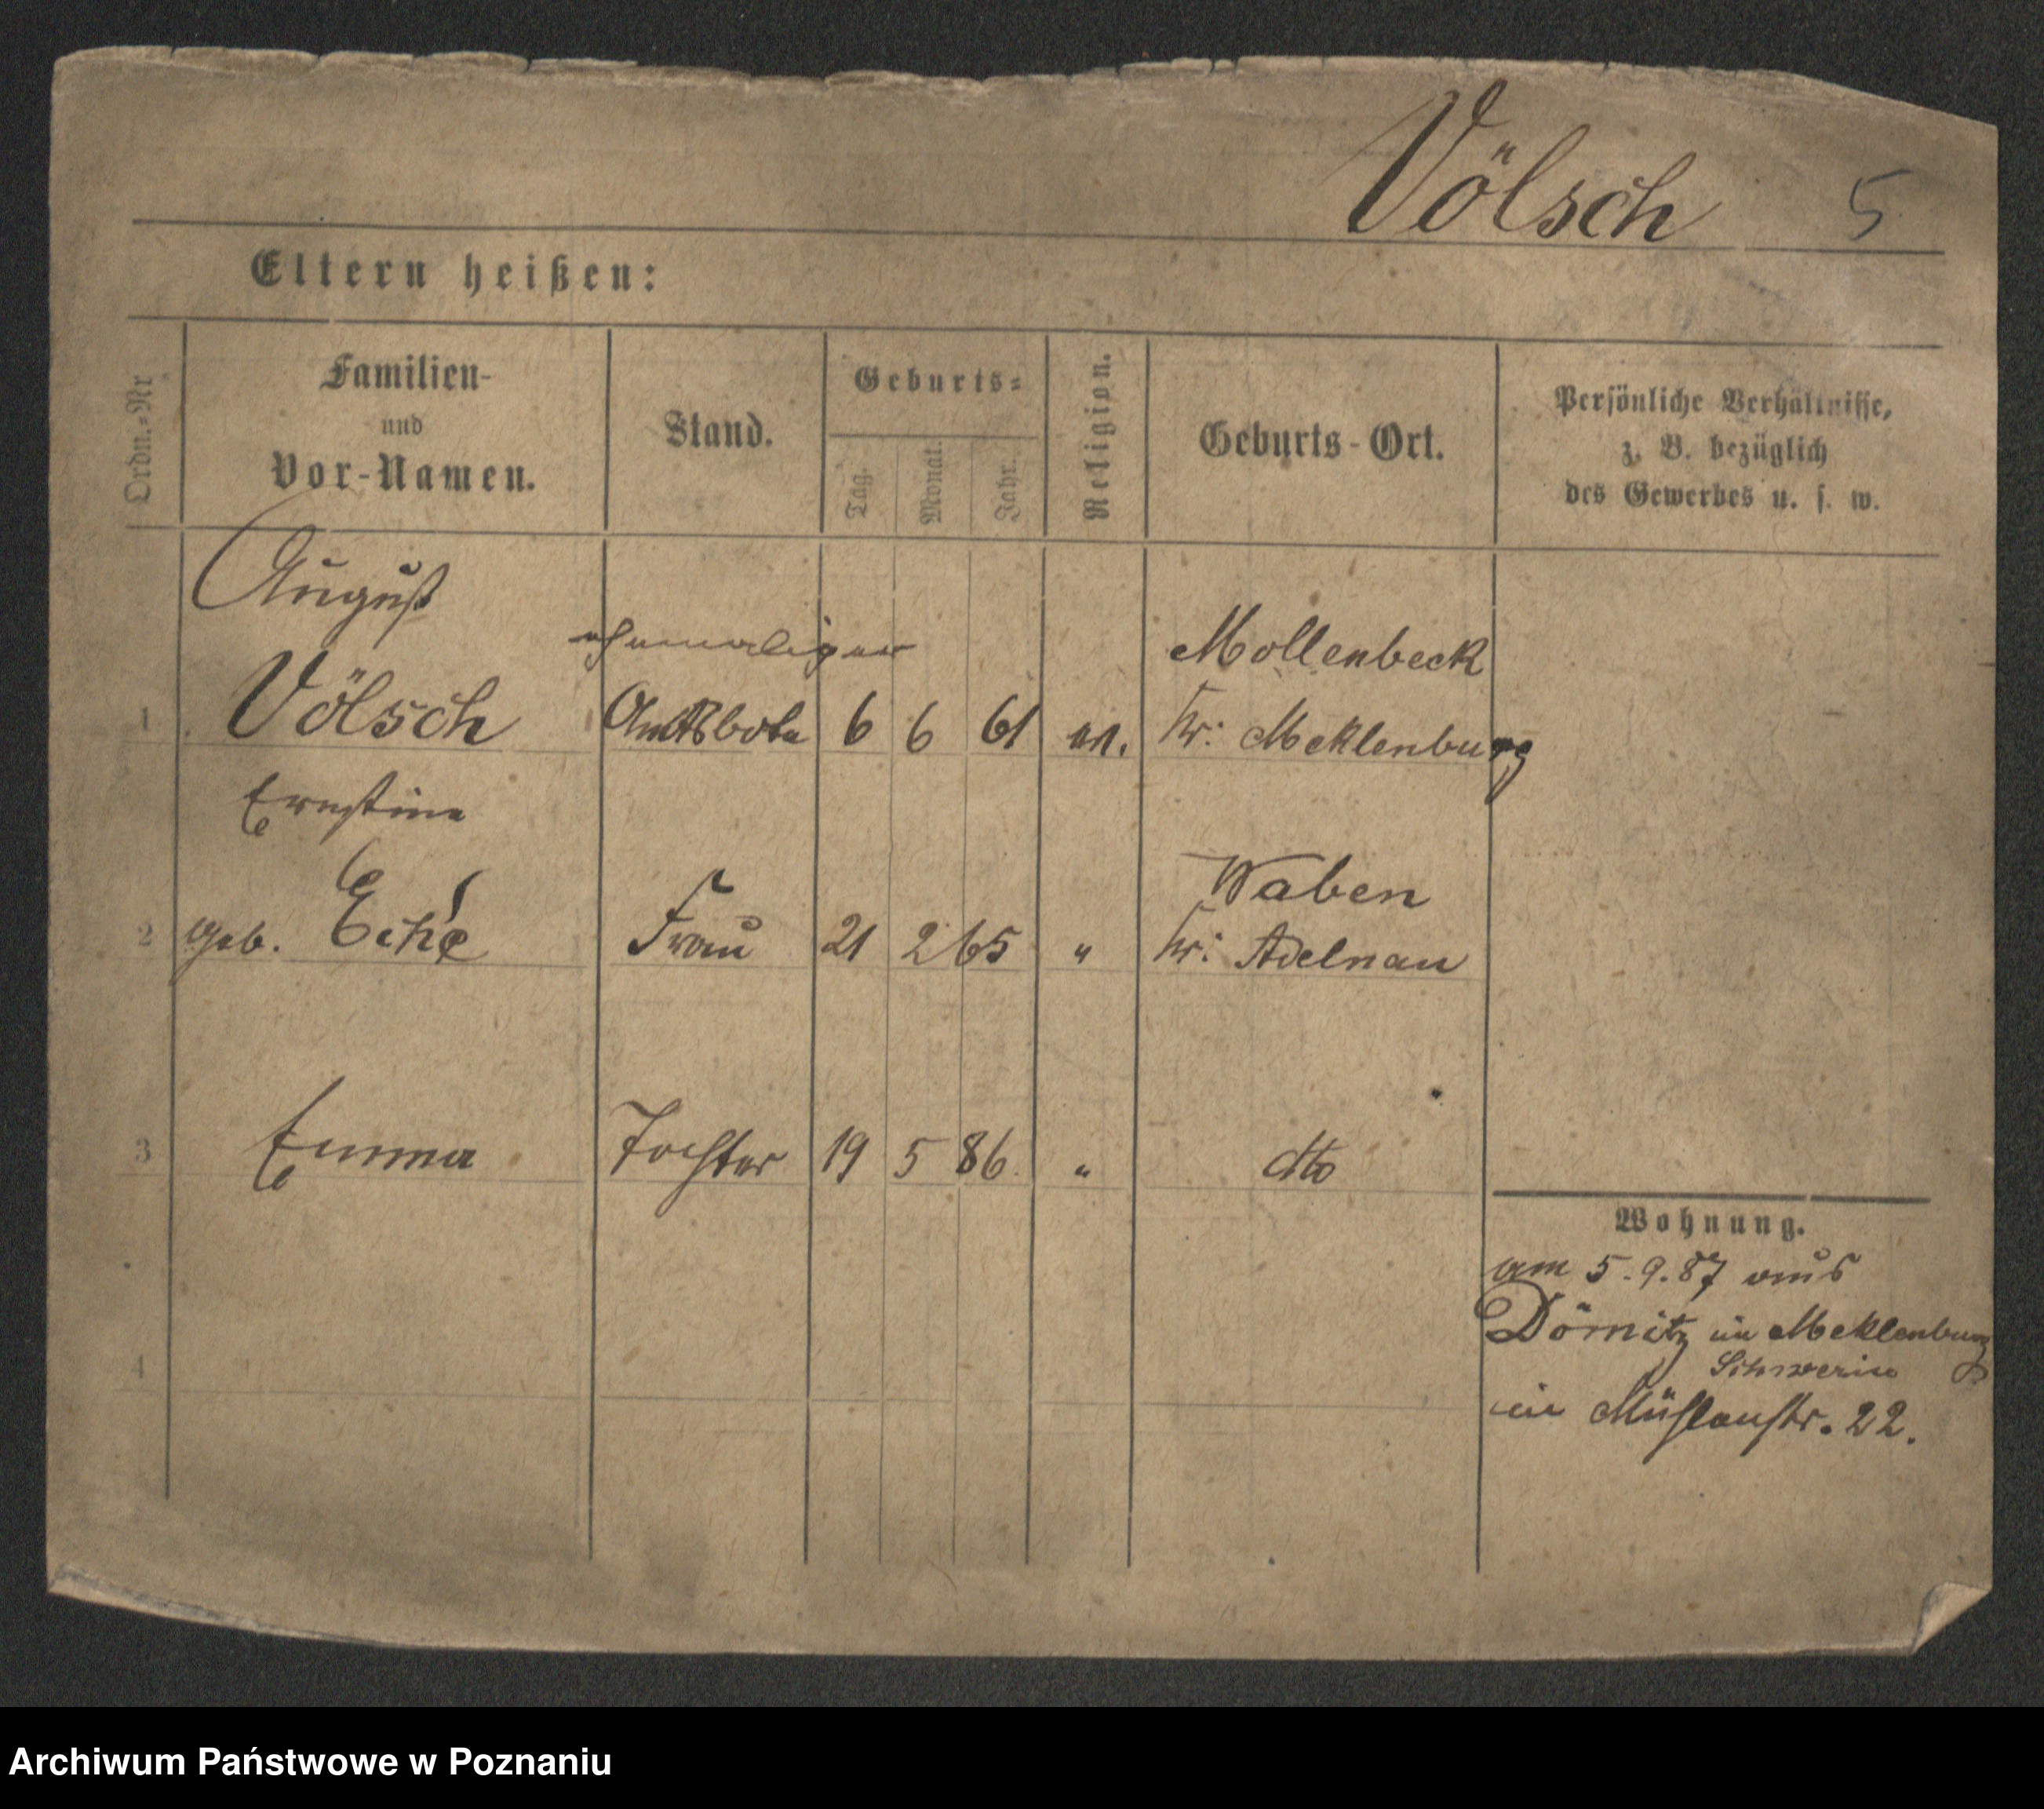 Völsch 5
Eltern heißen:
Ordn.-Nr
Familien-
und
Vor-Namen.
Stand.
Geburts-
Tag.
Monat.
Jahr.
Religion.
Geburts-Ort.
Persönliche Verhältnisse,
z. B. bezüglich
des Gewerbes u. s. w.
August
ehemaliger
Mollenbeck
1 Völsch Amtsbote 6 6 61 ev. Kr: Meklenburg
Ernestine
Waben
2 geb. Eché Frau 21 2 65 " Kr: Adelnau
3 Emma Tochter 19 5 86 " dto
Wohnung.
am 5.9.87 aus
Dömitz in Meklenburg
Schwerin
4
in Mühlenstr. 22.
Archiwum Państwowe w Poznaniu